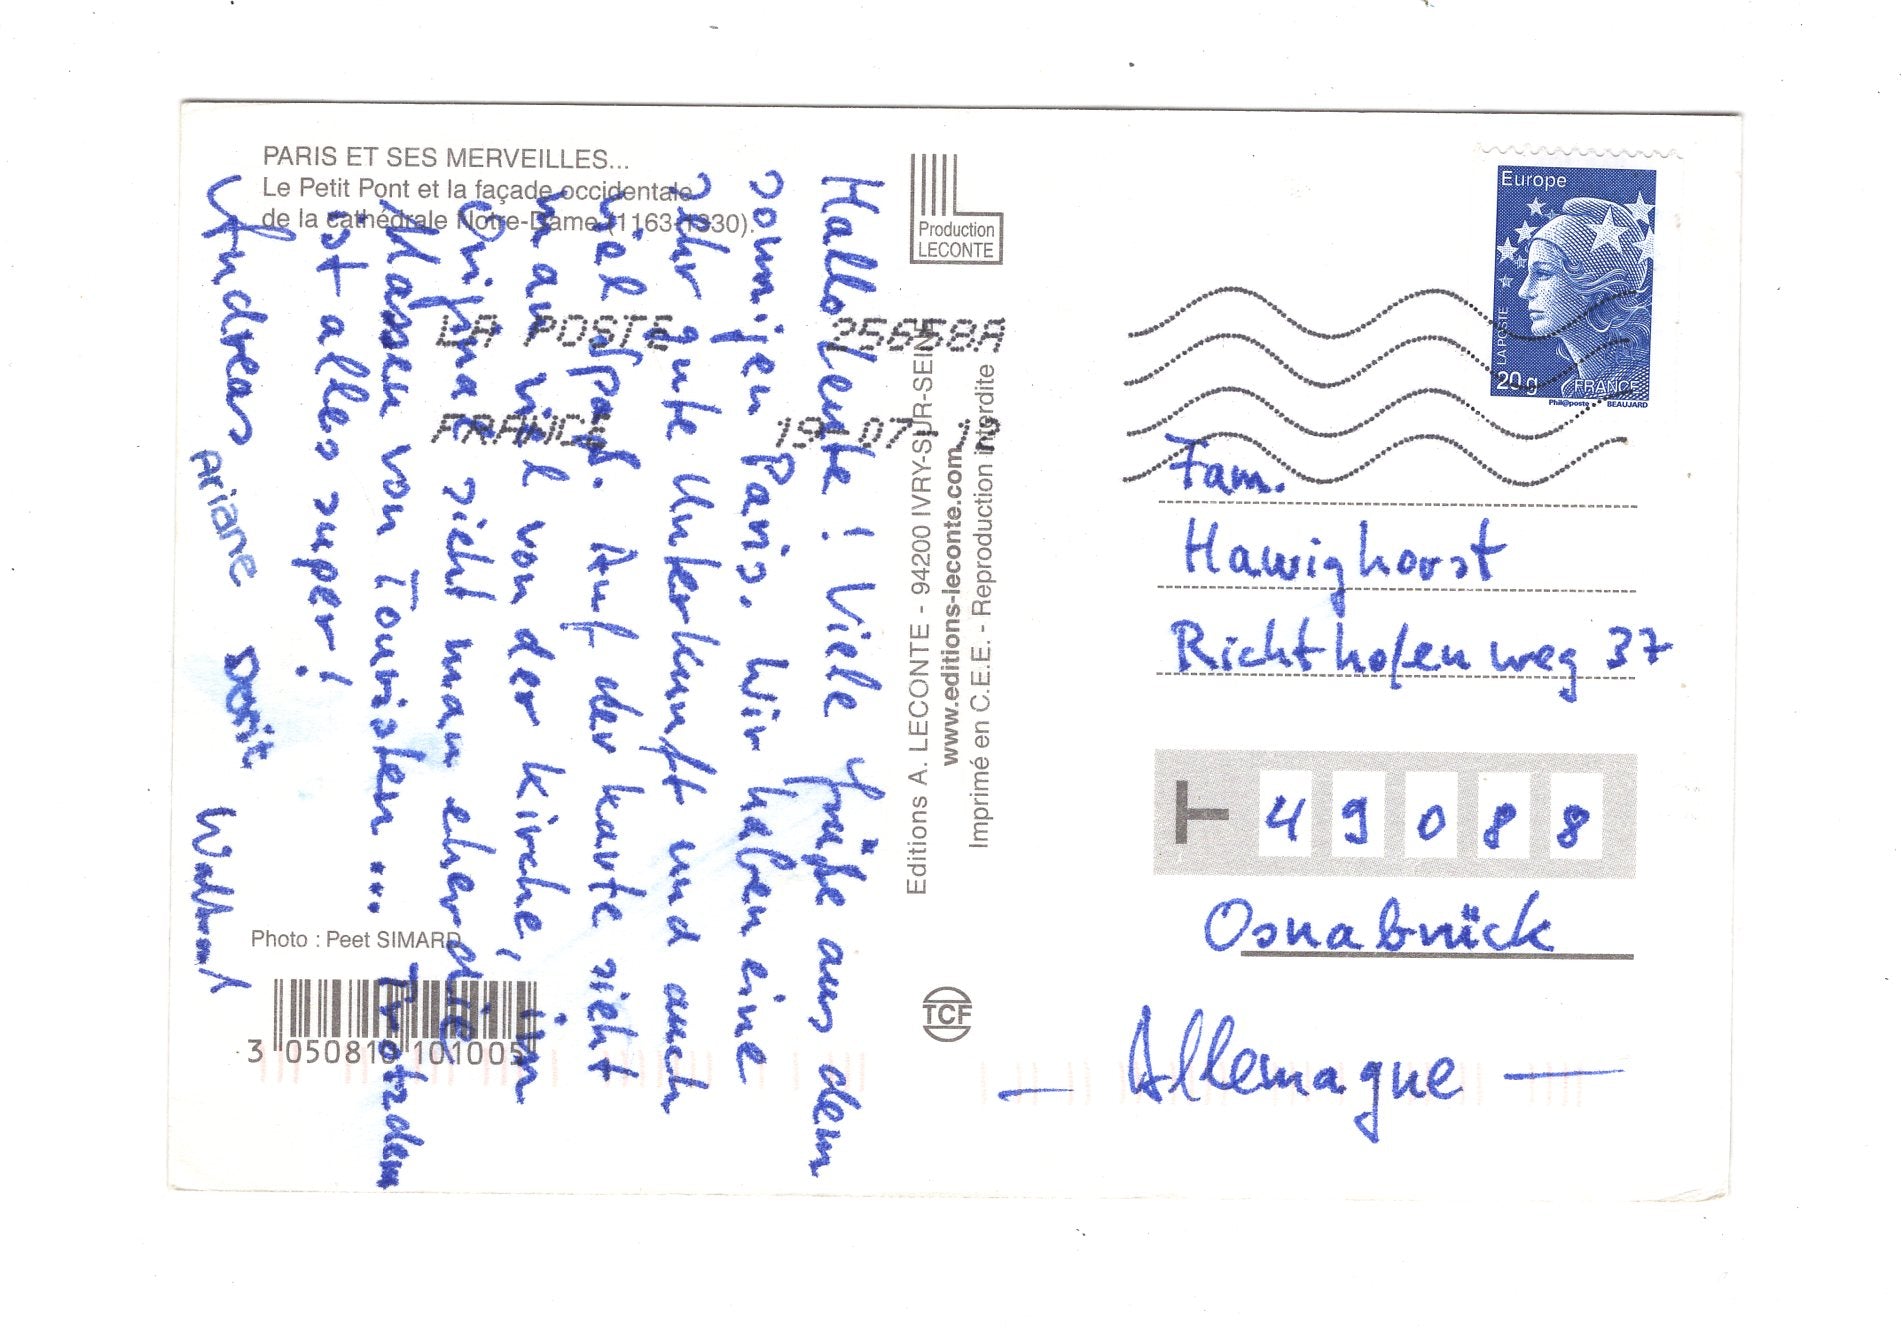 PARIS ET SES MERVEILLES...
Le Petit Pont et la façade occidentale
de la cathédrale Notre-Dame (1163-1330).
Hallo Leute! Viele Grüße aus dem
sonnigen Paris. Wir haben eine
sehr gute Unterkunft und auch
viel Spaß. Auf der Karte sieht
man viel von der Kirche, im
Original sieht man eher die
Massen von Touristen... Trotzdem
ist alles super!
Andreas Ariane Dorit Waltraud
LA POSTE 25658A
FRANCE 19-07-
Photo : Peet SIMARD
3 050810 101005
Production
LECONTE
Editions A. LECONTE - 94200 IVRY-SUR-SEINE
www.editions-leconte.com
Imprimé en C.E.E. - Reproduction interdite
TCF
Europe
LA POSTE
20g FRANCE
Phil@poste BEAUJARD
Fam.
Hawighorst
Richthofenweg 37
T 49088
Osnabrück
— Allemagne —